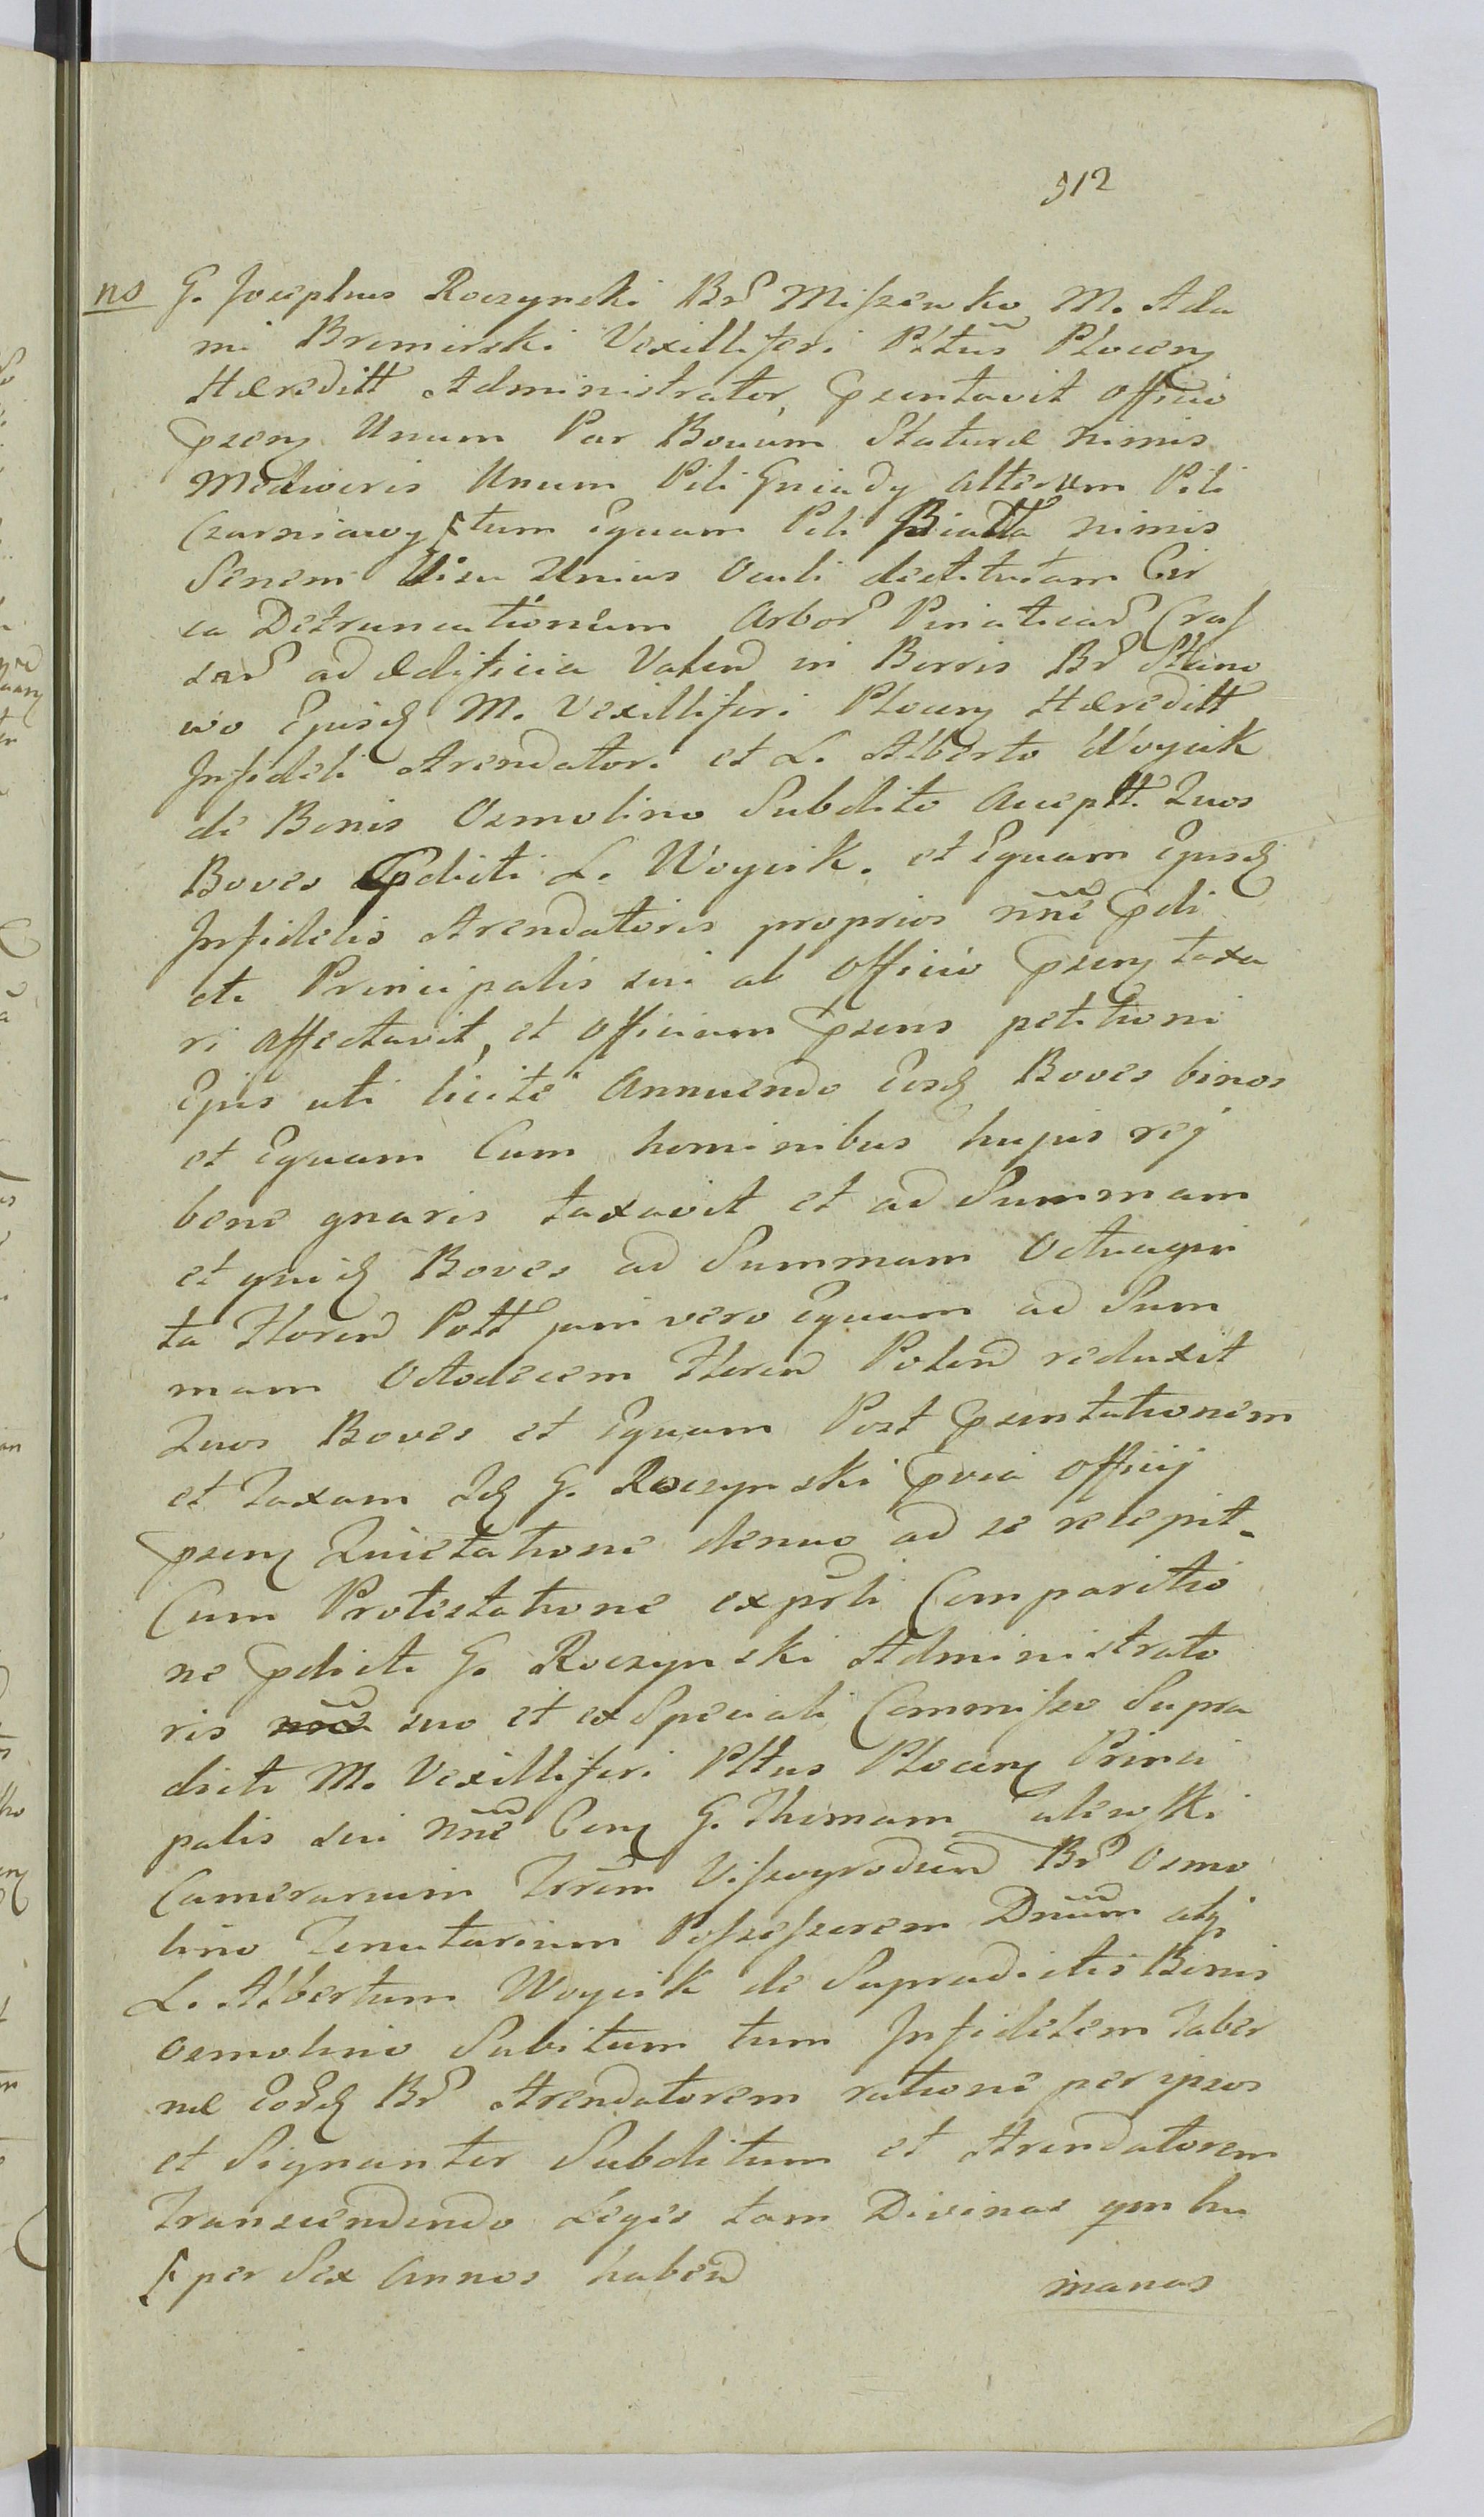 912
ns G. Josephus Roczynski Br Miszewko M. Ada
mi Bromirski Vexilliferi Pltus Plocen
Hæreditt Administrator, Pzentavit Officio
Pzen Unum Par Bouum Staturæ nimis
Mediocris Unum Pili Gniady alterum Pili
Czarniawy tum Equam Pili Biatta nimis
Senem Visu Unius Oculi destitutam Cir
ca Detruncationem Arbor Pinaticar Cras
sar ad ædificia Valend in Bonis Br Stano
wo Ejusd M. Vexilliferi Plocen Hæreditt
Infideli Arendatori et L. Alberto Woycik
de Bonis Osmolino Subdito Acceptt. Quos
Boves Pdicti L. Woycik. et Equam Ejusd
Infidelis Arendatoris proprios nne Pdi
cti Principalis sui ab Officio Pzen taxa
ri affectavit, et Officium Pzens petitioni
Ejus uti licite Annuendo Eosd Boves binos
et Equam Cum hominibus hujus rej
bene gnaris taxavit et ad Summam
et quid Boves ad Summam Octuagin
ta Floren Poll jam vero Equam ad Sum
mam Octodecem Floren Polon reduxit
Quos Boves et Equam Post Pzentationem
et Taxam Id G. Roczynski Pvia Officij
Pzen Quietatione denuo ad se recepit
Cum Protestatione ex psli Comparitio
ne Pdicti G. Roczynski Administrato
ris noe suo et ex Speciali Commisso Supra
dicti M. Vexilliferi Pltus Plocen Princi
palis sui nne Con G. Thomam Zalewski
Camerarium Trrem Viszogroden Br Osmo
lino Tenutarium Possessorem Dnum atq
L. Albertum Woycik de Supradictis Bonis
Osmolino Subitum tum Infidelem Taber
næ Eord Br Arendatorem ratione per ipsos
et Signanter Subditum et Arendatorem
Transcendendo Leges tam Divinas qm hu
per Sex Annos haben
manas